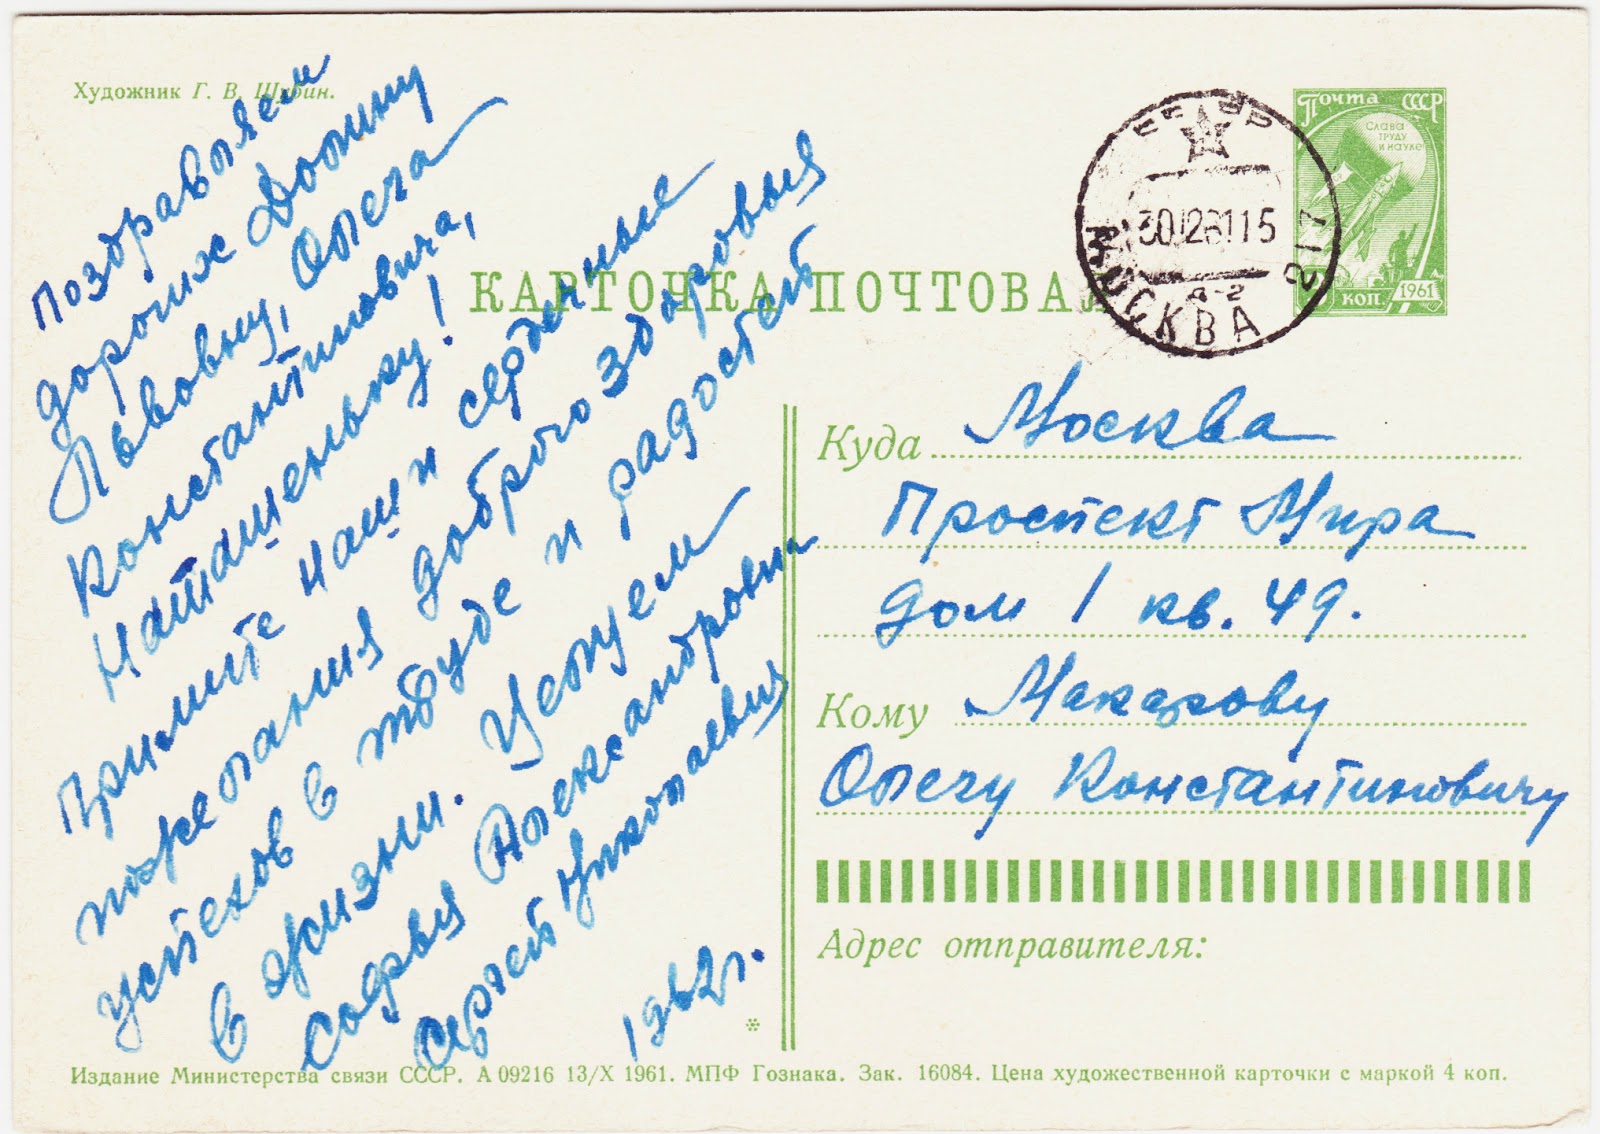 Художник Г. В. Шубин.
Поздравляем
дорогих
Львовну, Олега
Константиновича,
Наташеньку!
Примите наши сердечные
пожелания доброго здоровья
успехов в труде и радостей
в жизни. Целуем
Софья Александровна
Сергей Николаевич
1962 г.
КАРТОЧКА ПОЧТОВАЯ
Почта СССР
Слава
труду
и науке
КОП. 1961
СССР
МОСКВА
217
Куда Москва
Проспект Мира
дом 1 кв. 49.
Кому Макарову
Олегу Константиновичу
Адрес отправителя:
Издание Министерства связи СССР. А 09216 13/X 1961. МПФ Гознака. Зак. 16084. Цена художественной карточки с маркой 4 коп.